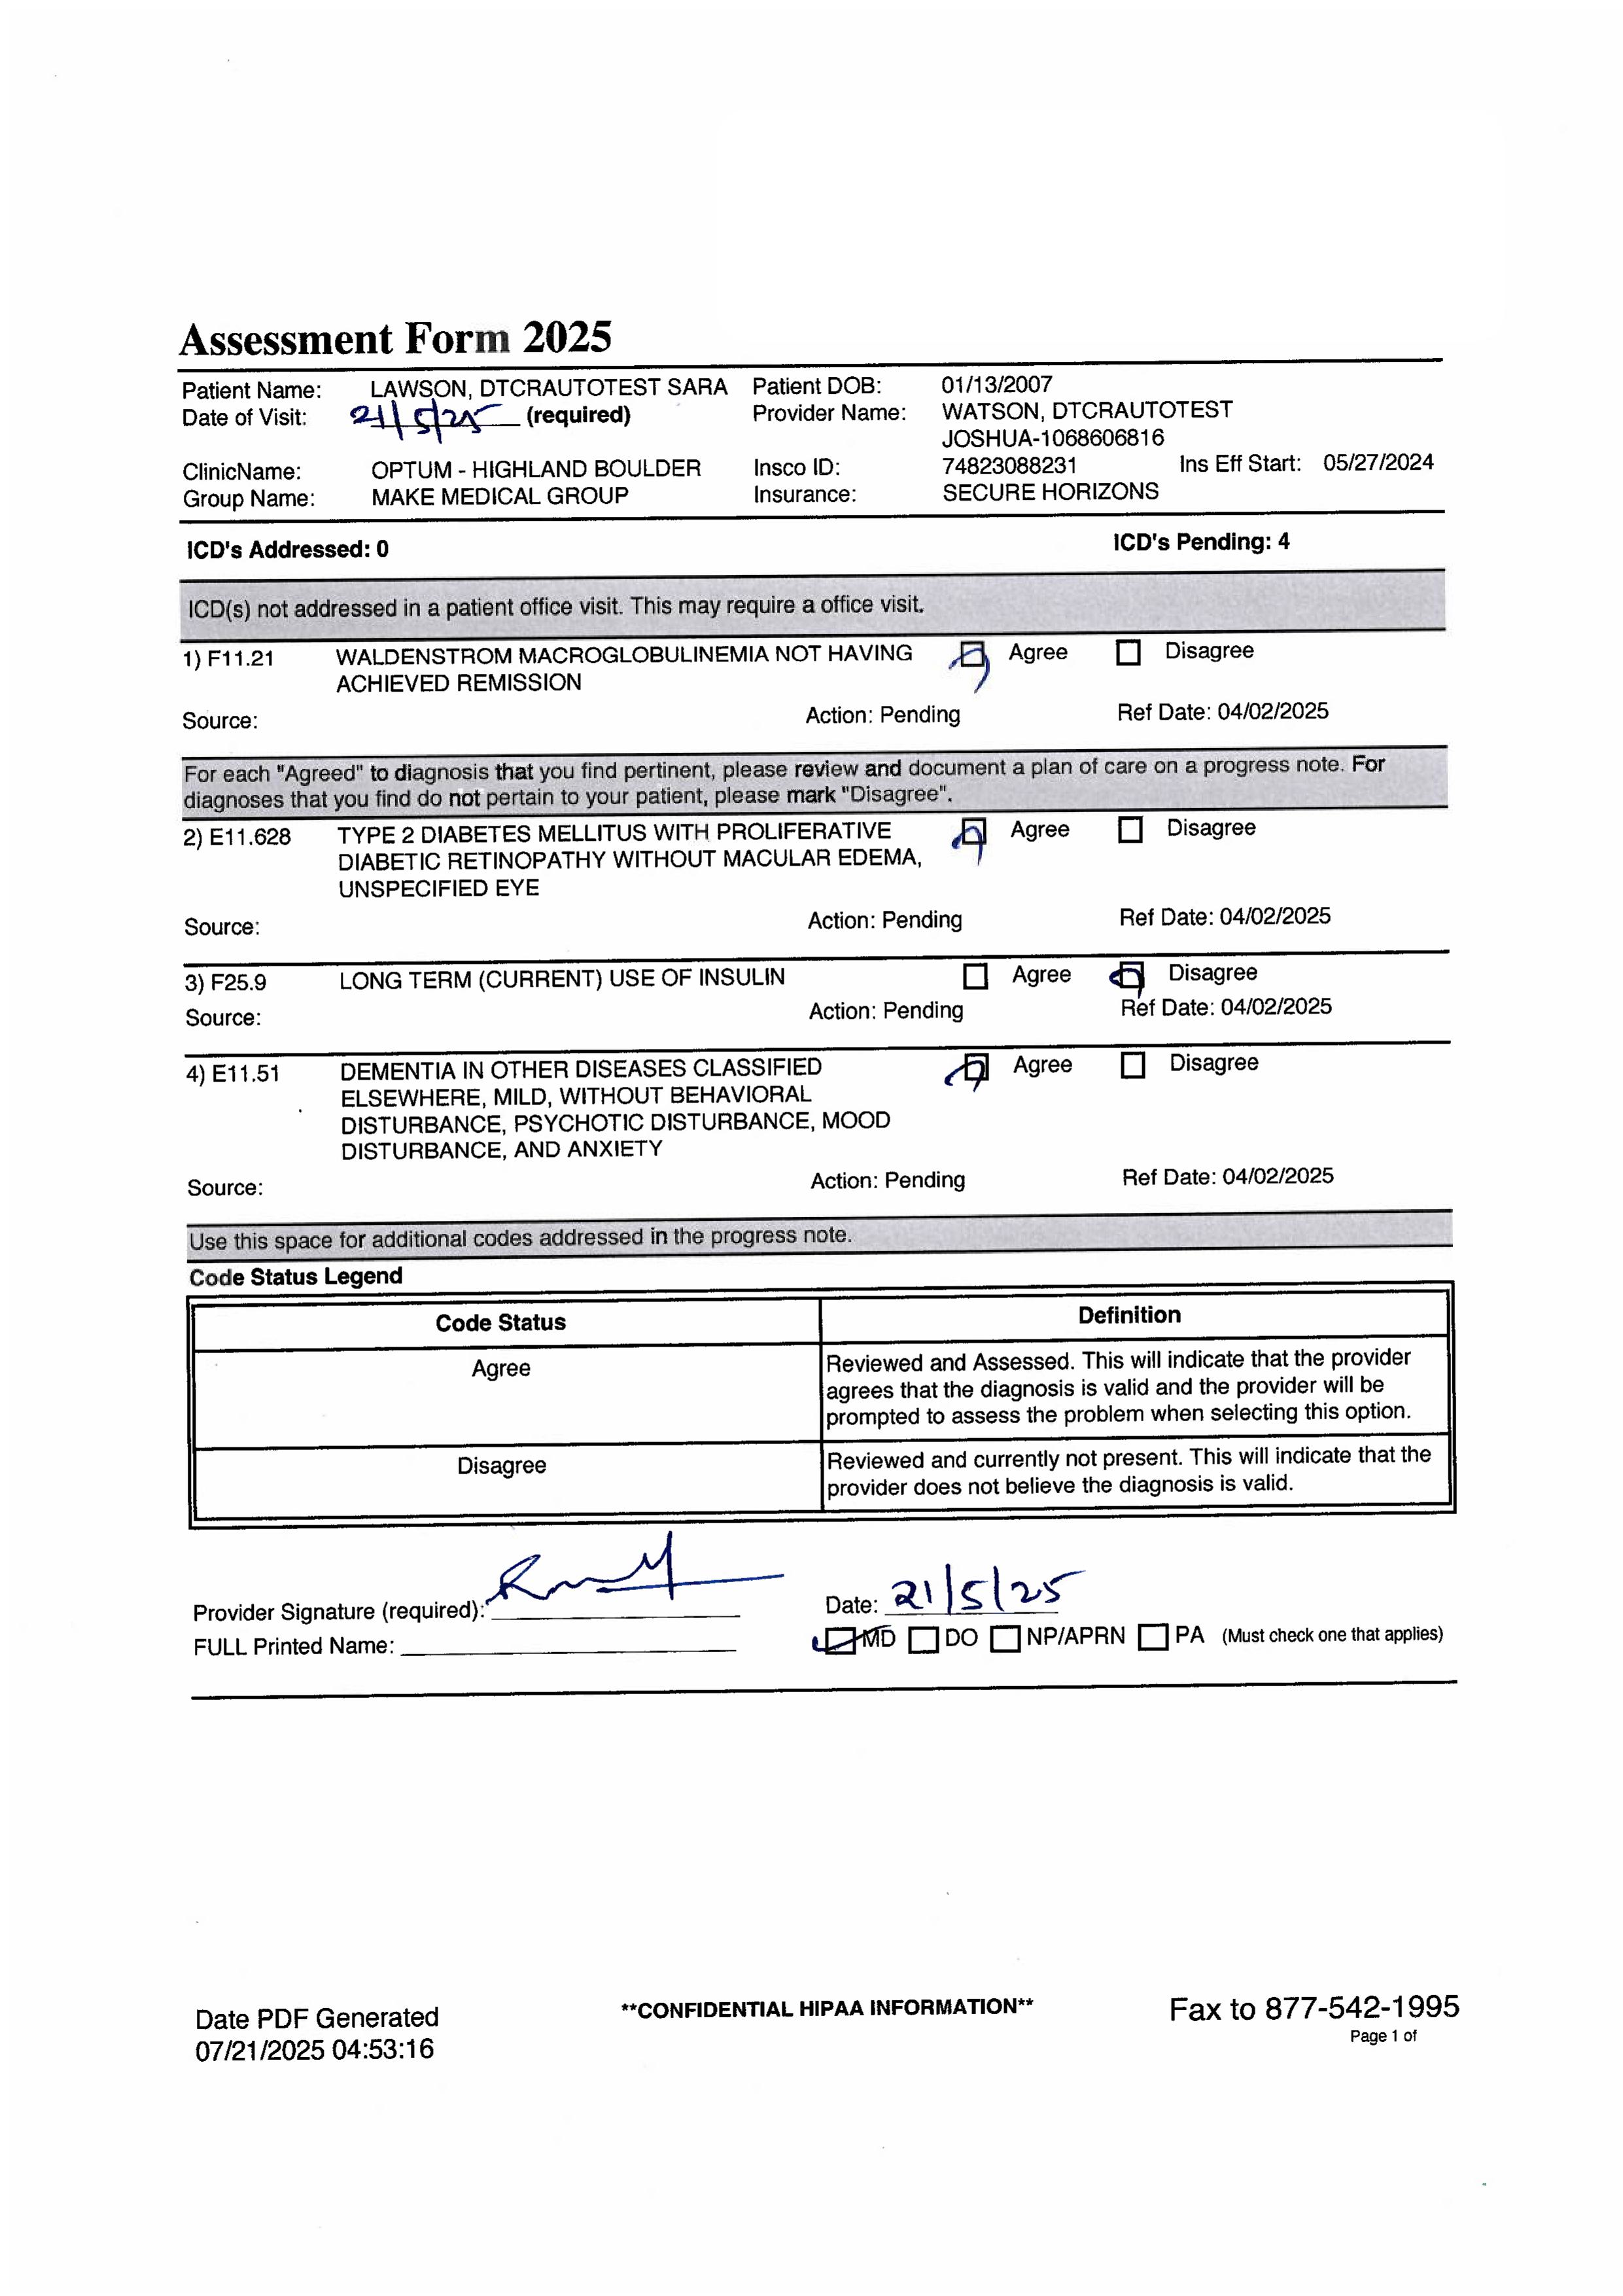 Assessment Form 2025
Patient Name: LAWSON, DTCRAUTOTEST SARA Patient DOB: 01/13/2007
Date of Visit: 21/5/25 (required) Provider Name: WATSON, DTCRAUTOTEST
JOSHUA-1068606816
ClinicName: OPTUM - HIGHLAND BOULDER Insco ID: 74823088231 Ins Eff Start: 05/27/2024
Group Name: MAKE MEDICAL GROUP Insurance: SECURE HORIZONS
ICD's Addressed: 0 ICD's Pending: 4
ICD(s) not addressed in a patient office visit. This may require a office visit.
1) F11.21 WALDENSTROM MACROGLOBULINEMIA NOT HAVING Agree Disagree
ACHIEVED REMISSION
Source: Action: Pending Ref Date: 04/02/2025
For each "Agreed" to diagnosis that you find pertinent, please review and document a plan of care on a progress note. For
diagnoses that you find do not pertain to your patient, please mark "Disagree".
2) E11.628 TYPE 2 DIABETES MELLITUS WITH PROLIFERATIVE Agree Disagree
DIABETIC RETINOPATHY WITHOUT MACULAR EDEMA,
UNSPECIFIED EYE
Source: Action: Pending Ref Date: 04/02/2025
3) F25.9 LONG TERM (CURRENT) USE OF INSULIN Agree Disagree
Source: Action: Pending Ref Date: 04/02/2025
4) E11.51 DEMENTIA IN OTHER DISEASES CLASSIFIED Agree Disagree
ELSEWHERE, MILD, WITHOUT BEHAVIORAL
DISTURBANCE, PSYCHOTIC DISTURBANCE, MOOD
DISTURBANCE, AND ANXIETY
Source: Action: Pending Ref Date: 04/02/2025
Use this space for additional codes addressed in the progress note.
Code Status Legend
Code Status Definition
Agree Reviewed and Assessed. This will indicate that the provider
agrees that the diagnosis is valid and the provider will be
prompted to assess the problem when selecting this option.
Disagree Reviewed and currently not present. This will indicate that the
provider does not believe the diagnosis is valid.
Provider Signature (required): Date: 21/5/25
FULL Printed Name: MD DO NP/APRN PA (Must check one that applies)
Date PDF Generated **CONFIDENTIAL HIPAA INFORMATION** Fax to 877-542-1995
07/21/2025 04:53:16 Page 1 of